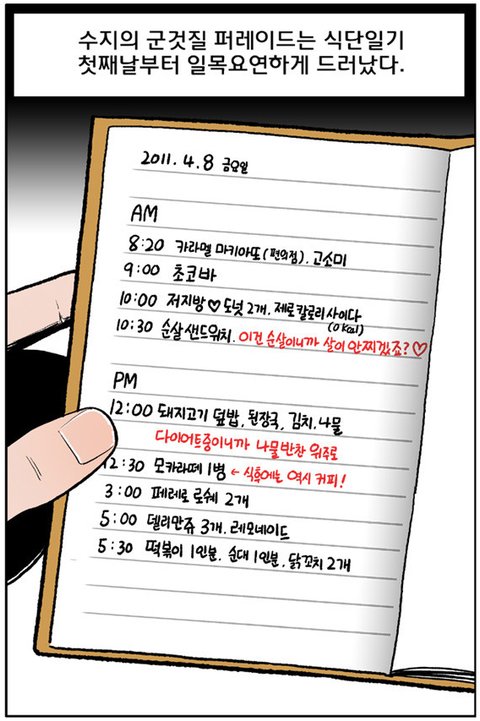 수지의 군것질 퍼레이드는 식단일기
첫째날부터 일목요연하게 드러났다.
2011. 4. 8 금요일
AM
8:20 카라멜 마키아또(편의점). 고소미
9:00 초코바
10:00 저지방♡도넛 2개. 제로칼로리사이다
(0 kcal)
10:30 순살샌드위치. 이건 순살이니까 살이 안찌겠죠?♡
PM
12:00 돼지고기 덮밥, 된장국, 김치.나물
다이어트중이니까 나물반찬 위주로
12:30 모카라떼 1병 ← 식후에는 역시 커피!
3:00 페레로 로쉐 2개
5:00 델리만쥬 3개. 레모네이드
5:30 떡볶이 1인분. 순대 1인분. 닭꼬치 2개